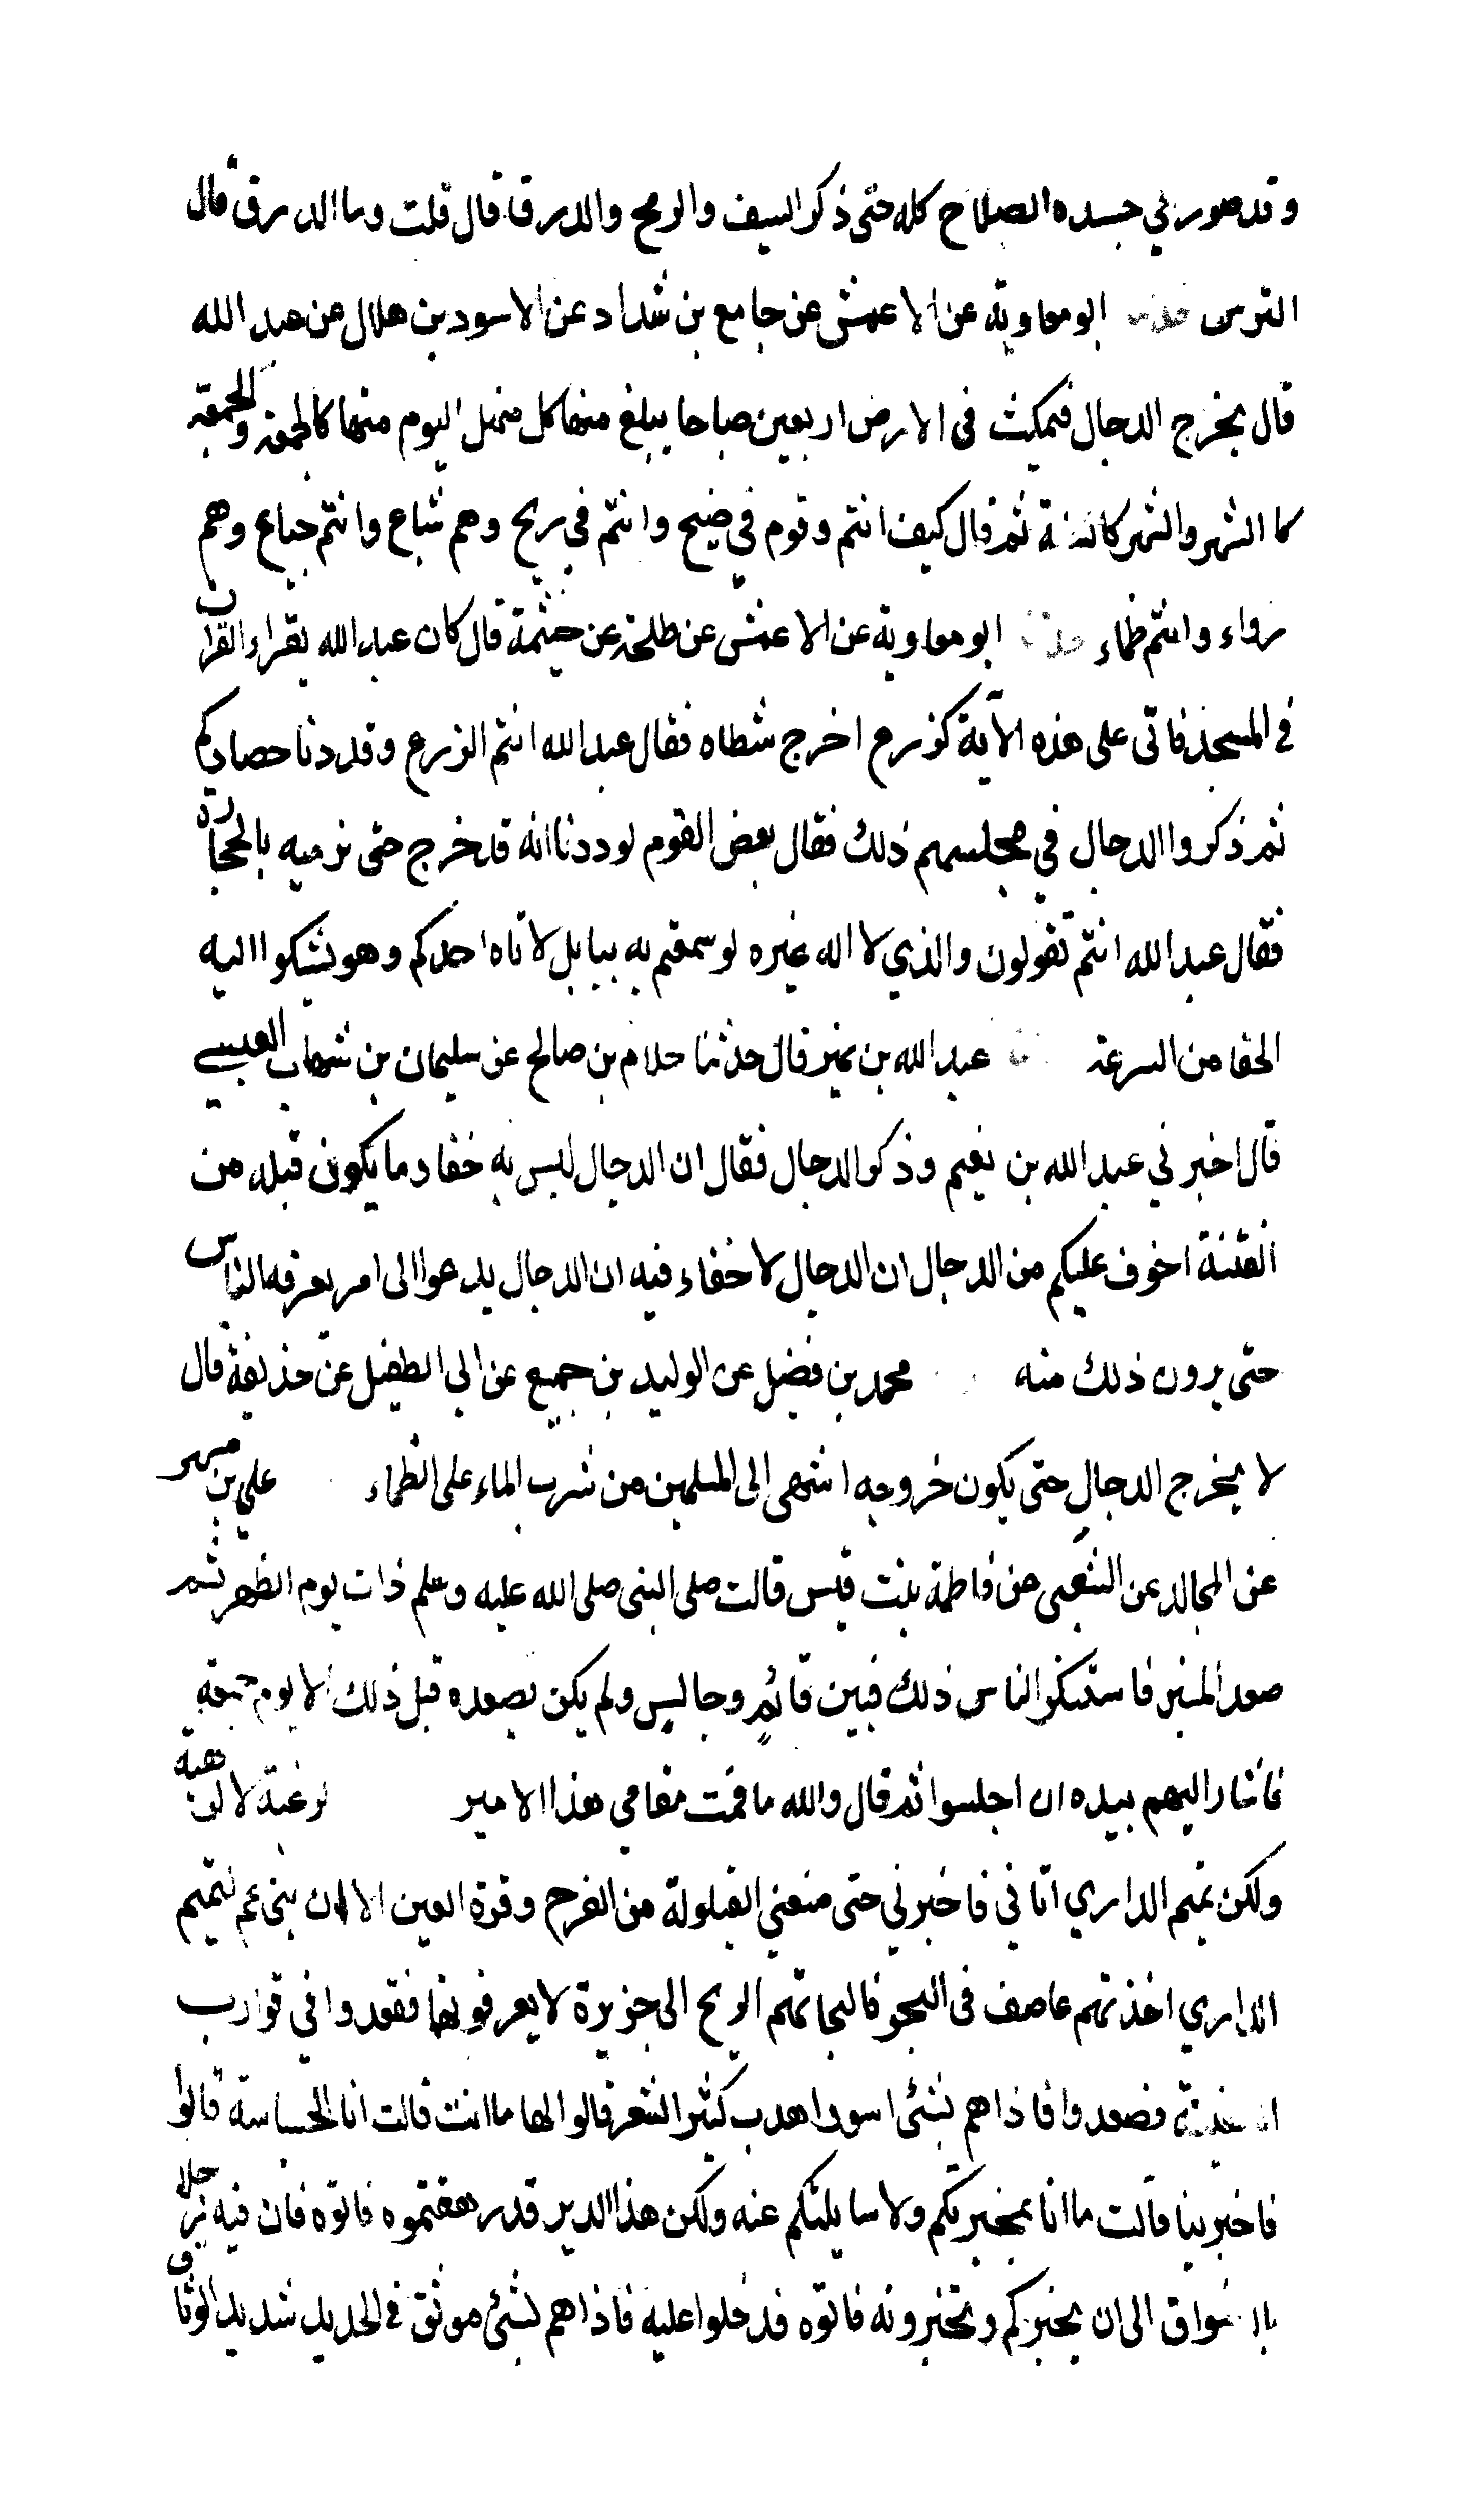 وقد صور في جسده السلاح كله حتى ذكر السيف والرمح والدرق قال قلت وما الدرق قال
الترس حدثنا ابو معاوية عن الاعمش عن جامع بن شداد عن الاسود بن هلال عن عبد الله
قال يخرج الدجال فيمكث في الارض اربعين صباحا يبلغ منها كل منهل اليوم منها كالجمعة والجمعة
كالشهر والشهر كالسنة ثم قال كيف انتم وقوم في ضيح وانتم في ريح وهم شباع وانتم جياع وهم
رواء وانتم ظماء حدثنا ابو معاوية عن الاعمش عن طلحة عن خيثمة قال كان عبد الله يقراء القران
في المسجد فاتى على هذه الآية كزرع اخرج شطاه فقال عبد الله انتم الزرع وقد دنا حصادكم
ثم ذكروا الدجال في مجلسهم ذلك فقال بعض القوم لوددنا انه قد خرج حتى نرميه بالحجارة
فقال عبد الله انتم تقولون والذي لا اله غيره لو سمعتم به ببابل لاتاه احدكم وهو يشكوا اليه
الحفا من السرعة عبد الله بن نمير قال حدثنا حلام بن صالح عن سليمان بن شهاب العبسي
قال اخبرني عبد الله بن نعيم وذكر الدجال فقال ان الدجال ليس به خفا وما يكون قبله من
الفتنة اخوف عليكم من الدجال ان الدجال لا خفاء فيه ان الدجال يدعوا الى امر يعرفه الناس
حتى يرون ذلك منه محمد بن فضيل عن الوليد بن جميع عن ابي الطفيل عن حذيفة قال
لا يخرج الدجال حتى يكون خروجه اشهى الى المسلمين من شرب الماء على الظماء علي بن مسهر
عن المجالد عن الشعبي عن فاطمة بنت قيس قالت صلى النبي صلى الله عليه وسلم ذات يوم الظهر ثم
صعد المنبر فاستنكر الناس ذلك فبين قائم وجالس ولم يكن يصعده قبل ذلك الا يوم جمعة
فاشار اليهم بيده ان اجلسوا ثم قال والله ما قمت مقامي هذا الامير لرغبة لا لرهبة
ولكن تميم الداري اتاني فاخبرني حتى منعني القيلولة من الفرح وقرة العين الا ان بني عم لتميم
الداري اخذتهم عاصف في البحر فالجاتهم الريح الى جزيرة لا يعرفونها فقعدوا في قوارب
السفينة فصعدوا فاذا هم بشئ اسود اهدب كثير الشعر قالوا لها ما انت قالت انا الجساسة قالوا
فاخبرينا قالت ما انا بمخبرتكم ولا سايلتكم عنه ولكن هذا الدير قد رهقتموه فاتوه فان فيه رجلا
بالاشواق الى ان يخبركم وتخبرونه فاتوه فدخلوا عليه فاذا هم بشئ موثق في الحديد شديد الوثاق